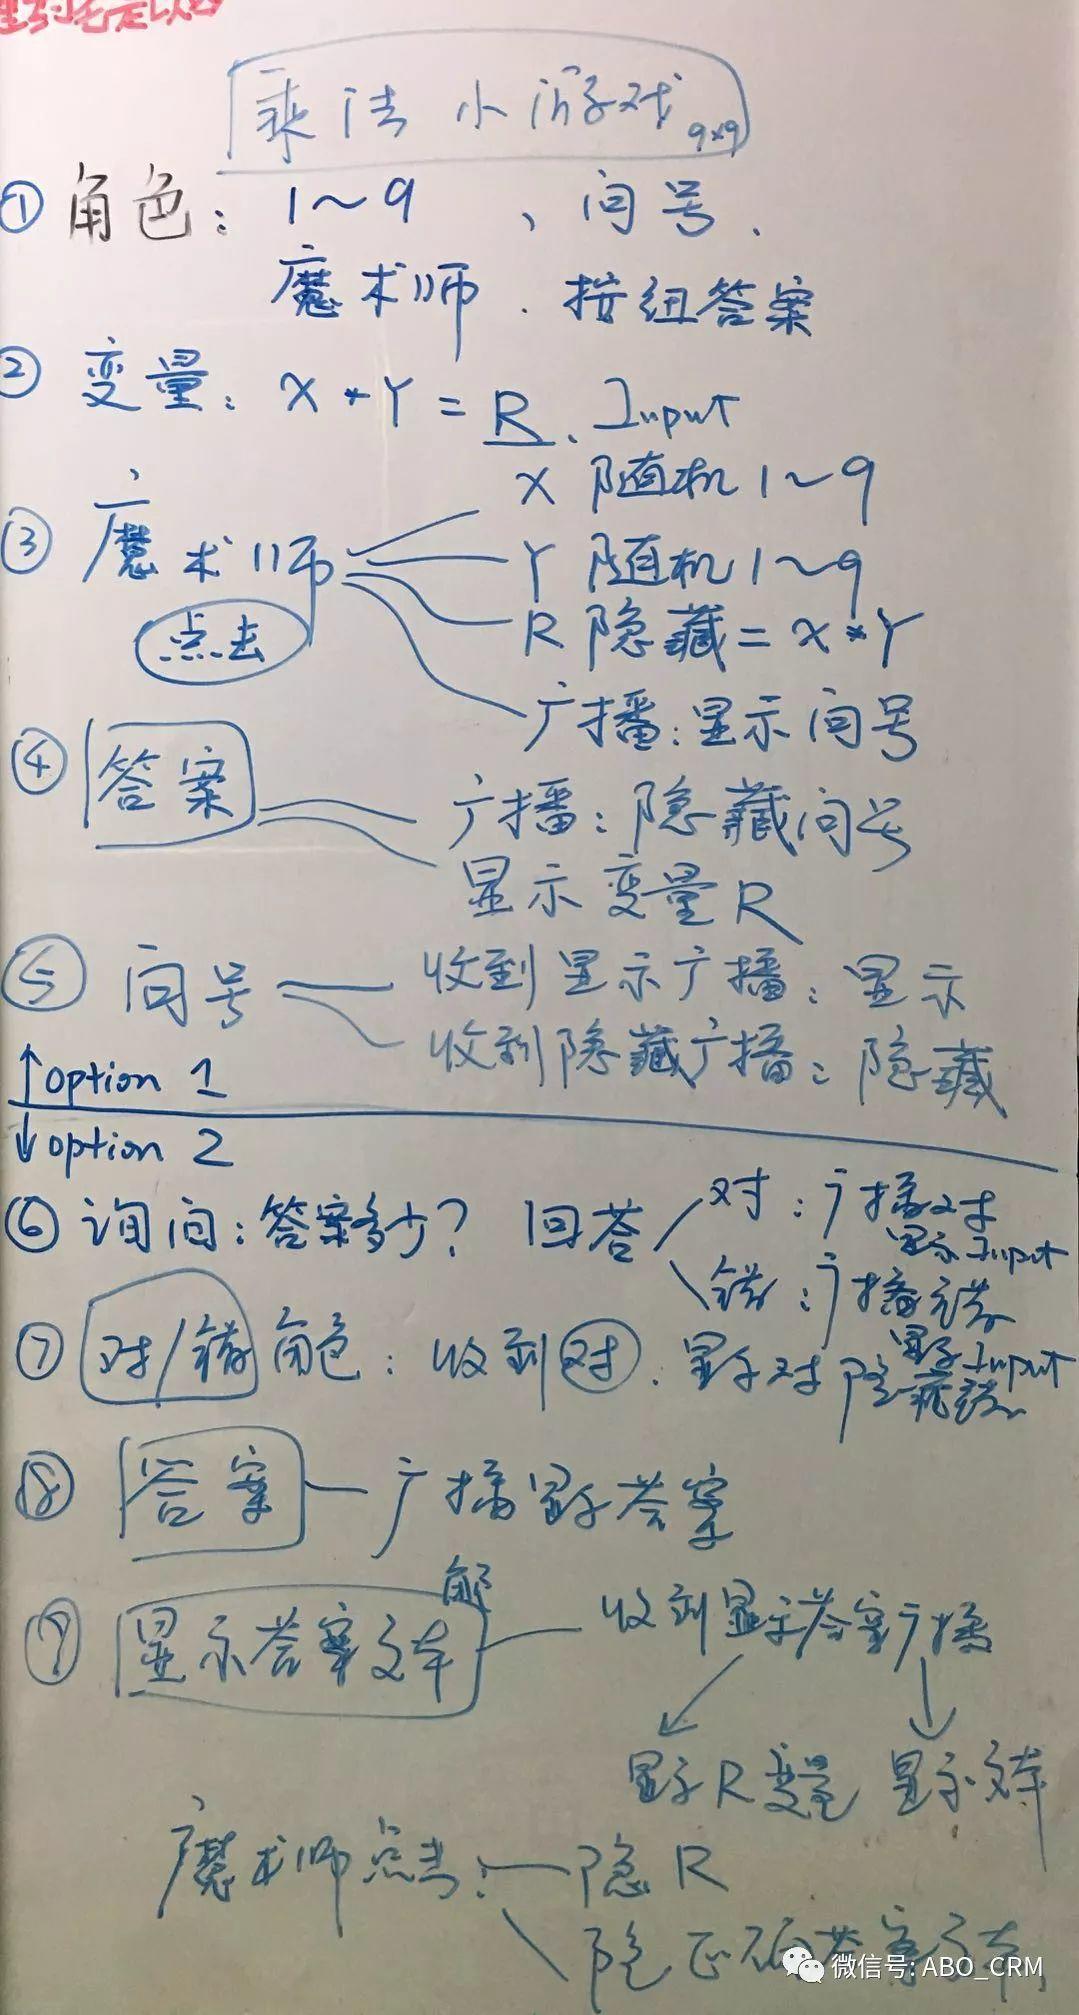 乘法小游戏 9*9
① 角色: 1~9 、问号.
魔术师. 按纽答案
② 变量: X * Y = R. Input
X 随机 1~9
③ 魔术师 Y 随机 1~9
点击 R 隐藏 = X * Y
广播: 显示问号
④ 答案 广播: 隐藏问号
显示变量 R
⑤ 问号 收到显示广播: 显示
收到隐藏广播: 隐藏
↑ option 1
↓ option 2
⑥ 询问: 答案多少? 回答 对: 广播对
显示 Input
错: 广播错
显示 Input
⑦ 对/错 角色: 收到对. 显示对 隐藏错
⑧ 答案 — 广播显示答案
解
⑨ 显示答案文本 — 收到显示答案广播
显示 R 变量 显示文本
魔术师点击: 隐 R
隐正确答案文本
微信号: ABO_CRM